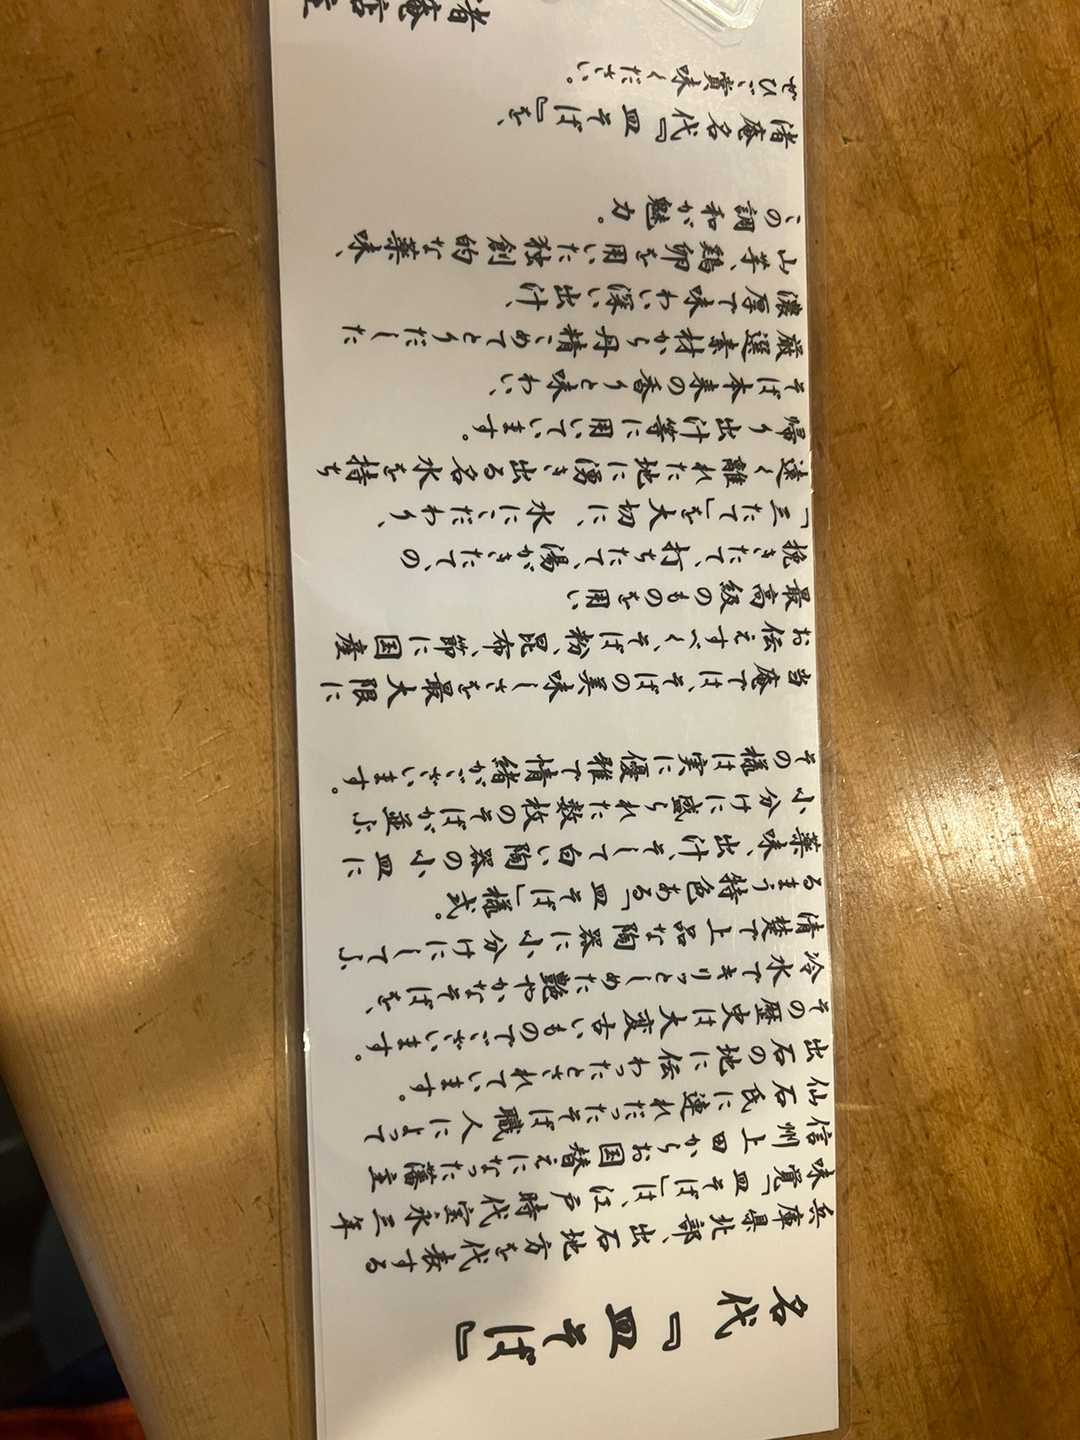 名代『皿そば』
兵庫県北部、出石地方を代表する
味覚「皿そば」は、江戸時代宝永三年
信州上田からお国替えになった藩主
仙石氏に連れだったそば職人によって
出石の地に伝わったとされています。
その歴史は大変古いものでございます。
冷水でキリッとしめた艶やかなそばを、
清楚で上品な陶器に小分けにしてふ
るまう特色ある「皿そば」様式。
薬味、出汁、そして白い陶器の小皿に
小分けに盛られた数枚のそばが並ぶ
その様は実に優雅で情緒がございます。
当庵では、そばの美味しさを最大限に
お伝えすべく、そば粉、昆布、節に国産
最高級のものを用い
挽きたて、打ちたて、湯がきたての
「三たて」を大切に、水にこだわり、
遠く離れた地に湧き出る名水を持ち
帰り出汁等に用いています。
そば本来の香りと味わい、
厳選素材から丹精こめてとりだした
濃厚で味わい深い出汁、
山芋、鶏卵を用いた独創的な薬味、
この調和が魅力。
渚庵名代『皿そば』を、
ぜひご賞味ください。
渚庵店主